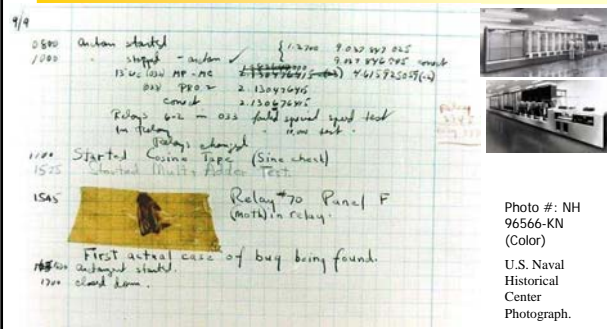 9/9
0800 antan started
1000 " stopped - antan ✓ { 1.2700 9.037 847 025
9.037 846 995 conect
13" uc (032) MP-MC 2.130476415 4.615925059(-2)
(033) PRO 2 2.130476415
conect 2.130676415
Relays 6-2 in 033 failed special speed test
in relay " 11.000 test.
Relays changed
1100 Started Cosine Tape (Sine check)
1525 Started Multi Adder Test.
1545 Relay #70 Panel F
(moth) in relay.
First actual case of bug being found.
antangent started.
1700 closed down.
Photo #: NH
96566-KN
(Color)
U.S. Naval
Historical
Center
Photograph.